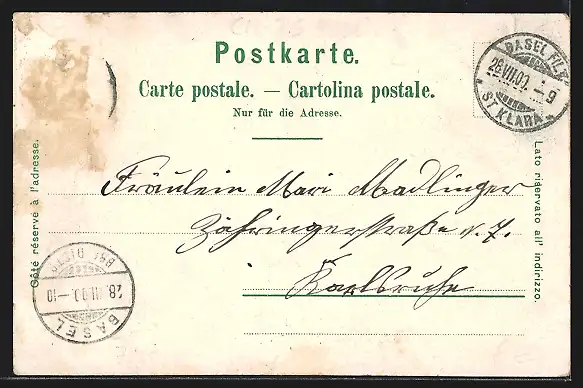 Postkarte.
Carte postale. — Cartolina postale.
Nur für die Adresse.
Côté réservé à l'adresse.
Lato riservato all' indirizzo.
BASEL FIL.
28.VII.00. – 9
ST KLARA
Fräulein Mari Madlinger
Zähringerstraße N. 7.
Karlsruhe
28.VII.00.–10
BASEL